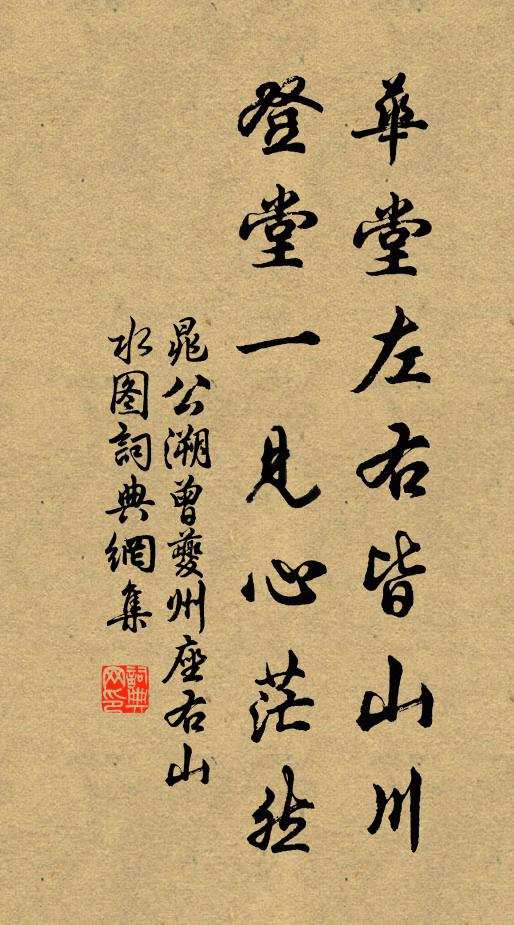 華堂左右皆山川
登堂一見心茫然
晁公溯曾夔州座右山
水图詞典網集
詞典
网印